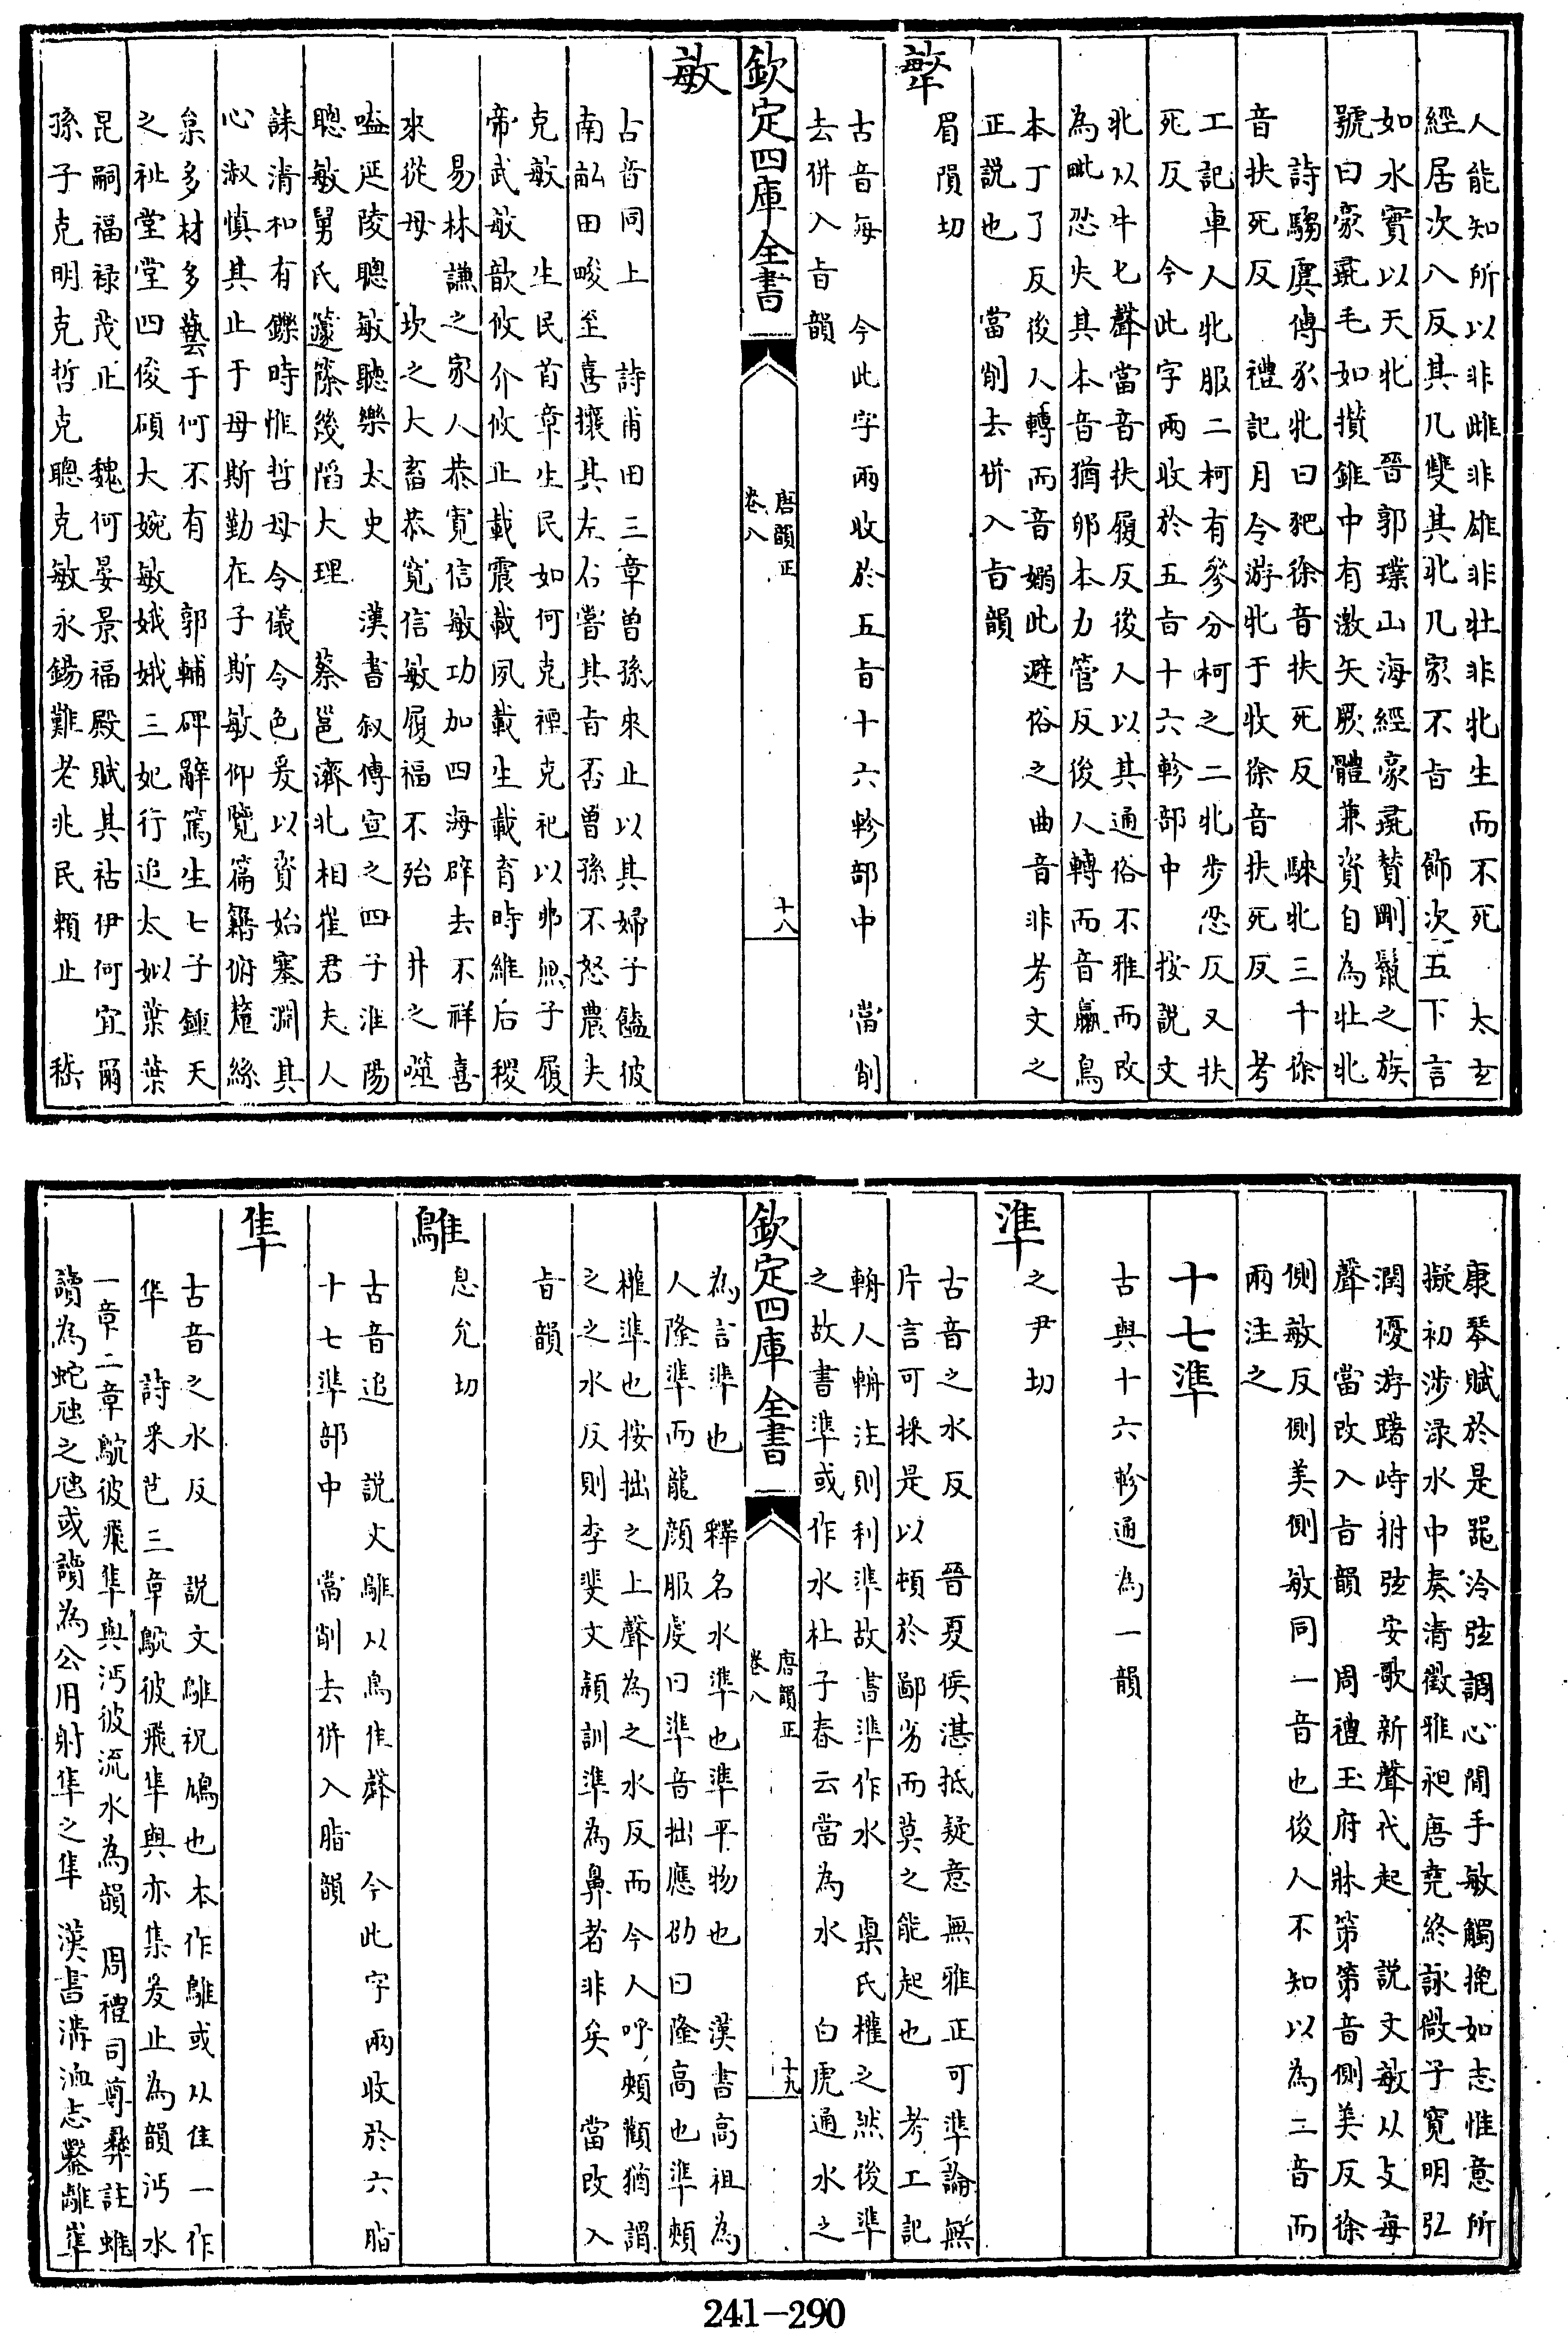 人能知所以非雌非雄非壯非牝生而不死　太玄
經居次八反其几雙其牝几家不旨　飾次五下言
如水實以天牝　晉郭璞山海經豪彘贊剛鬣之族
號曰豪彘毛如攢錐中有激矢厥體兼資自為牡牝
詩騶虞傳豕牝曰豝徐音扶死反　騋牝三千徐
音扶死反　禮記月令游牝于牧徐音扶死反　考
工記車人牝服二柯有參分柯之二牝步忍反又扶
死反　今此字兩收於五旨十六軫部中　按說文
牝以牛匕聲當音扶履反後人以其通俗不雅而改
為毗忍失其本音猶卵本力管反後人轉而音蠃鳥
本丁了反後人轉而音嫋此避俗之曲音非考文之
正說也　當削去併入旨韻
𢾭
眉隕切
古音每　今此字兩收於五旨十六軫部中　當削
去併入旨韻
欽定四庫全書
唐韻正
卷八
十八
敏
古音同上　詩甫田三章曾孫來止以其婦子饁彼
南畝田畯至喜攘其左右嘗其旨否曾孫不怒農夫
克敏　生民首章生民如何克禋克祀以弗無子履
帝武敏歆攸介攸止載震載夙載生載育時維后稷
易林謙之家人恭寬信敏功加四海辟去不祥喜
來從母　坎之大畜恭寬信敏履福不殆　井之噬
嗑延陵聰敏聽樂太史　漢書叙傳宣之四子淮陽
聰敏舅氏蘧篨幾陷大理　蔡邕濟北相崔君夫人
誄清和有鑠時惟哲母令儀令色爰以資始塞淵其
心淑慎其止于母斯勤在子斯敏仰覽篇籍俯釐絲
枲多材多藝于何不有　郭輔碑辭篤生七子鍾天
之祉堂堂四俊碩大婉敏娥娥三妃行追太姒葉葉
昆嗣福禄茂止　魏何晏景福殿賦其祜伊何宜爾
孫子克明克哲克聰克敏永錫難老兆民賴止　嵇
康琴賦於是器泠弦調心閒手敏觸㧗如志惟意所
擬初涉淥水中奏清徵雅昶唐堯終詠微子寛明弘
潤優游躇峙拊弦安歌新聲代起　說文敏以攴每
聲　當改入旨韻　周禮玉府牀第第音側美反徐
側敏反側美側敏同一音也後人不知以為二音而
兩注之
十七準
古與十六軫通為一韻
準
之尹切
古音之水反　晉夏侯湛抵疑意無雅正可準論無
片言可採是以頓於鄙劣而莫之能起也　考工記
輈人輈注則利準故書準作水　㮚氏權之然後準
之故書準或作水杜子春云當為水　白虎通水之
欽定四庫全書
唐韻正
卷八
十九
為言準也　釋名水準也準平物也　漢書高祖為
人隆準而龍顏服虔曰準音拙應劭曰隆高也準頰
權準也按拙之上聲為之水反而今人呼頰顴猶謂
之之水反則李斐文穎訓準為鼻者非矣　當改入
旨韻
鵻
息允切
古音追　說文鵻以鳥隹聲　今此字兩收於六脂
十七準部中　當削去併入脂韻
隼
古音之水反　說文鵻祝鳩也本作鵻或以隹一作
隼　詩采芑三章鴥彼飛隼與亦集爰止為韻沔水
一章二章鴥彼飛隼與沔彼流水為韻　周禮司尊彝註蜼
讀為蛇虺之虺或讀為公用射隼之隼　漢書溝洫志鑿離𡺸
241-290